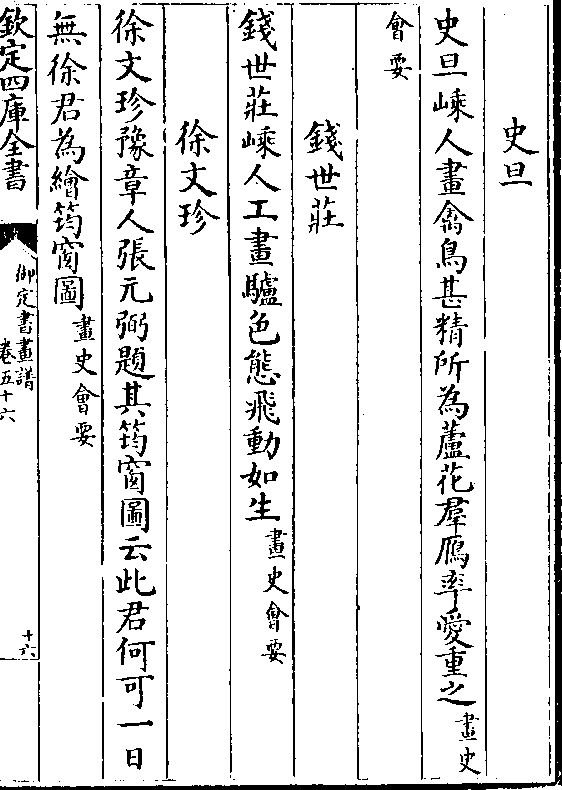 史旦
史旦嵊人畫禽鳥甚精所為蘆花羣鴈率愛重之畫史
會要
錢世莊
錢世莊嵊人工畫驢色態飛動如生畫史會要
徐文珍
徐文珍豫章人張元弼題其筠窗圖云此君何可一日
無徐君為繪筠窗圖畫史會要
欽定四庫全書
御定書畫譜
卷五十六
十六